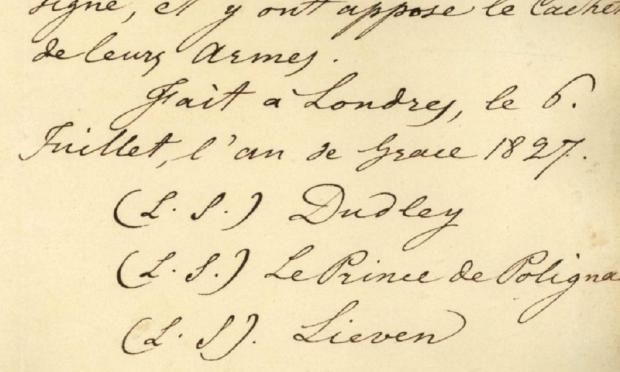 signé, et y ont apposé le Cachet
de leurs Armes.
Fait à Londres, le 6.
Juillet, l'an de Grace 1827.
(L. S.) Dudley
(L. S.) Le Prince de Poligna
(L. S). Lieven